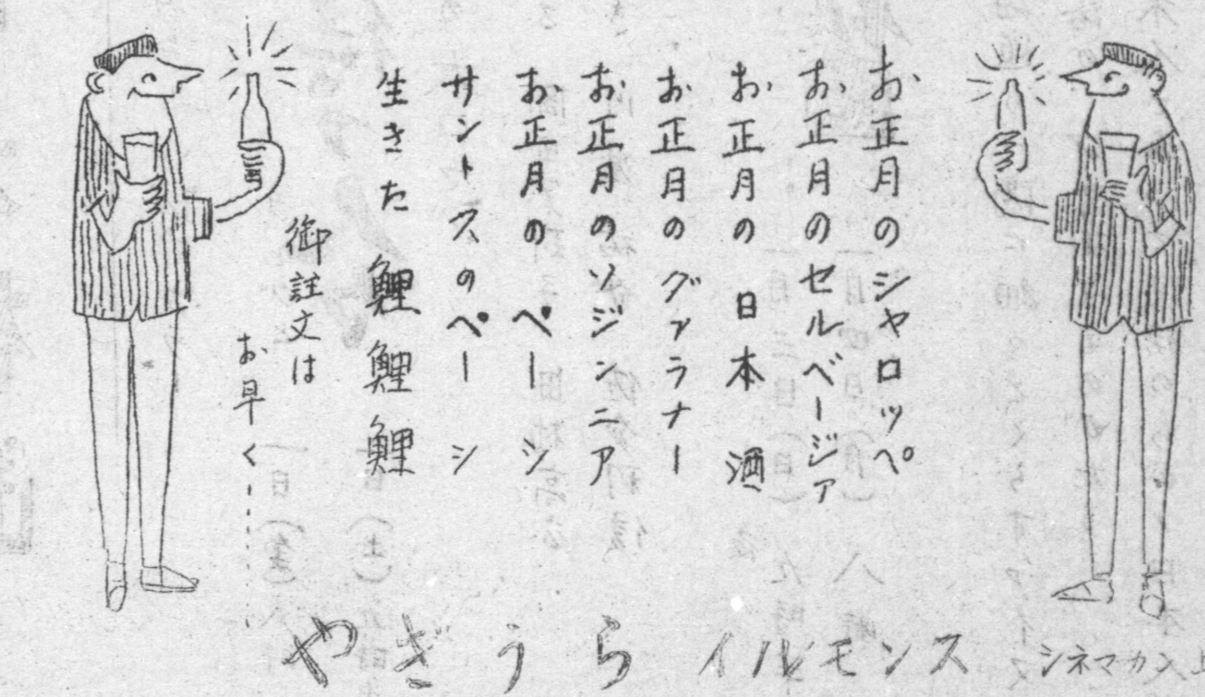 お正月のシャロッペ
お正月のセルベージァ
お正月の日本酒
お正月のグァラナー
お正月のソジンニア
お正月のペーシ
サントスのペーシ
生きた鯉鯉鯉
御註文は
お早く……
やぎうら イルモンス シネマカン上